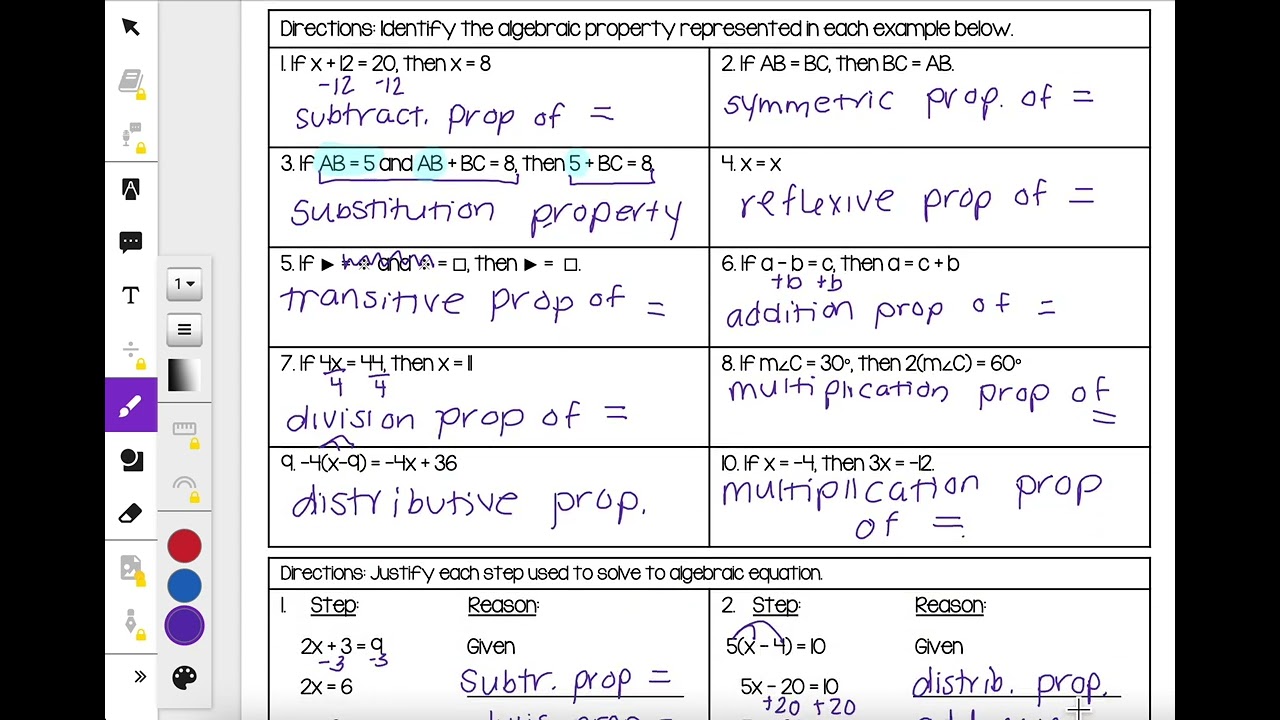 Directions: Identify the algebraic property represented in each example below.
1. If x + 12 = 20, then x = 8
-12 -12
subtract. prop of =
2. If AB = BC, then BC = AB.
symmetric prop. of =
3. If AB = 5 and AB + BC = 8, then 5 + BC = 8.
substitution property
4. x = x
reflexive prop of =
5. If ► and = □, then ► = □.
transitive prop of =
6. If a - b = c, then a = c + b
+b +b
addition prop of =
7. If 4x = 44, then x = 11
4 4
division prop of =
8. If m∠C = 30°, then 2(m∠C) = 60°
multiplication prop of
=
9. -4(x-9) = -4x + 36
distributive prop.
10. If x = -4, then 3x = -12.
multiplication prop
of =.
Directions: Justify each step used to solve to algebraic equation.
1. Step: Reason:
2x + 3 = 9 Given
-3 -3
2x = 6 Subtr. prop =
2. Step: Reason:
5(x - 4) = 10 Given
5x - 20 = 10 distrib. prop.
+20 +20
1
T